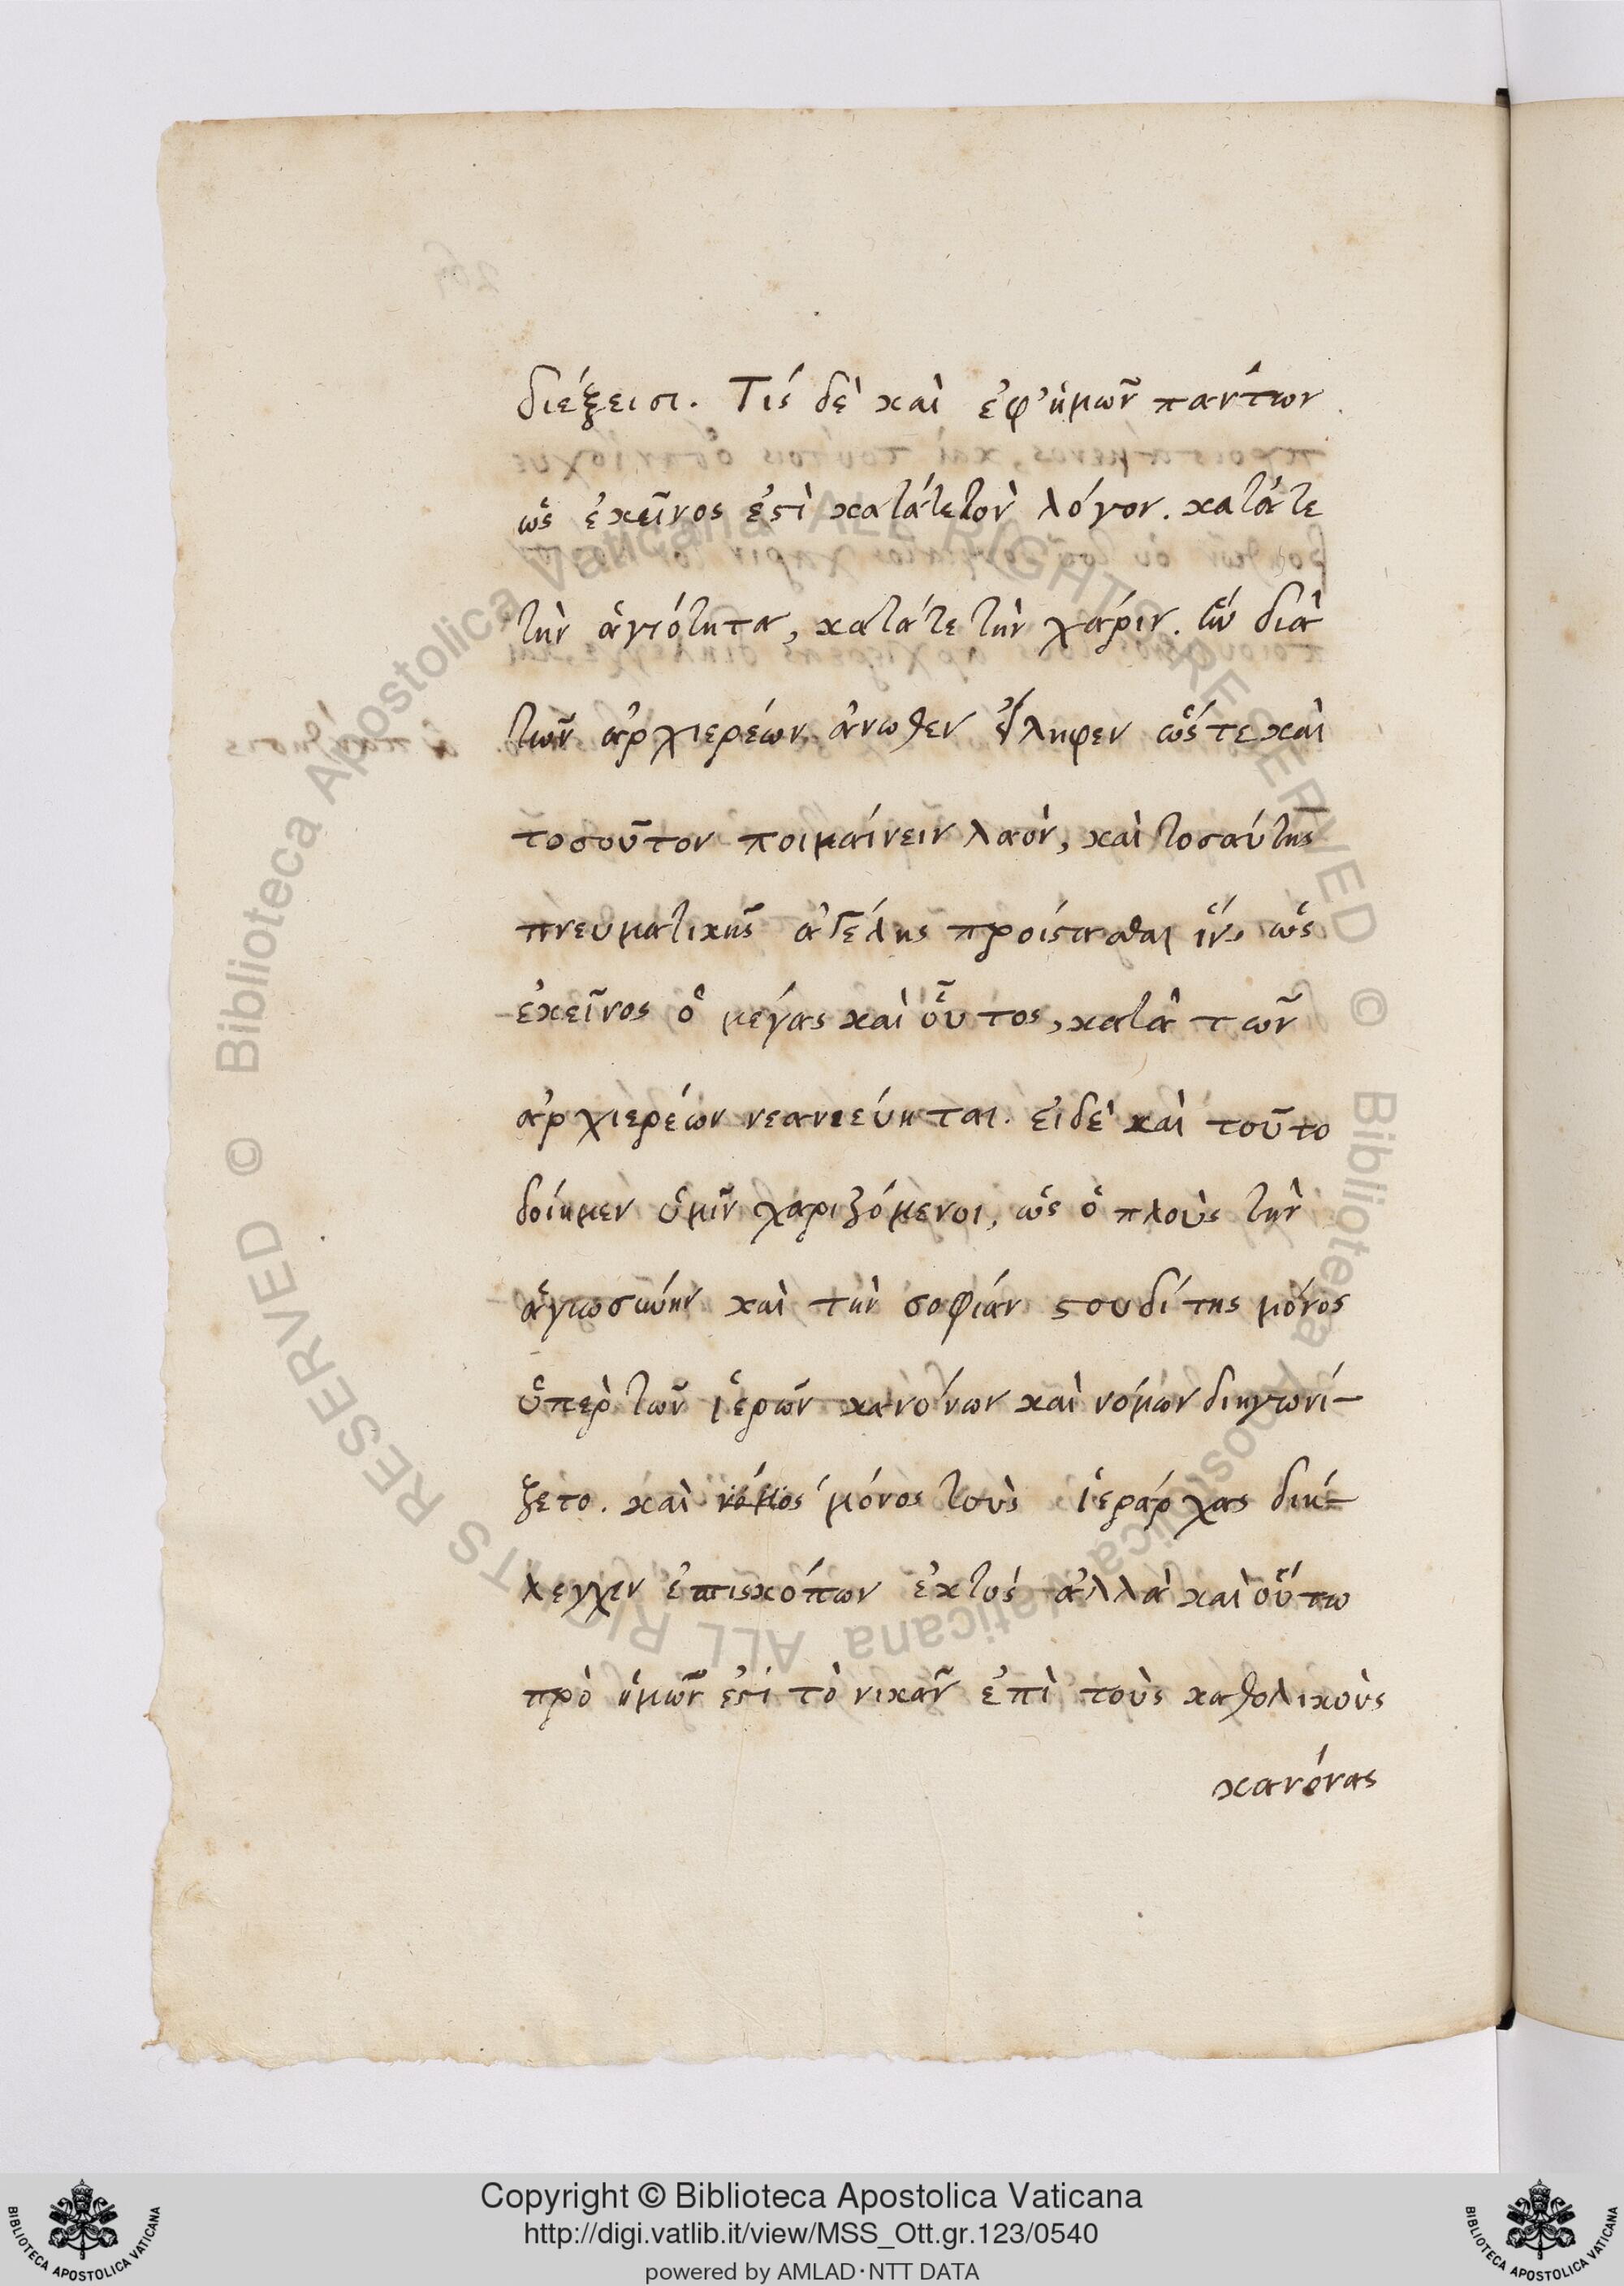 διέξεισι. Τίς δὲ καὶ ἐφ' ἡμῶν πάντων
ὡς ἐκεῖνος ἐστὶ κατάτετὸν λόγον. κατάτε
τὴν ἁγιότητα, κατάτε τὴν χάριν. ἣν διὰ
τῶν ἀρχιερέων ἄνωθεν εἴληφεν ὥστε καὶ
τοσοῦτον ποιμαίνειν λαόν, καὶ τοσαύτης
πνευματικῆς ἀγέλης προίστασθαι ἵν' ὡς
ἐκεῖνος ὁ μέγας καὶ οὗτος, κατὰ τῶν
ἀρχιερέων νεανιεύηται. εἰδὲ καὶ τοῦτο
δοίημεν ὑμῖν χαριζόμενοι, ὡς ὁ πλοὺς τὴν
ἁγιωσύνην καὶ τὴν σοφίαν στουδίτης μόνος
ὑπὲρ τῶν ἱερῶν κανόνων καὶ νόμων διηγωνί-
ζετο. καὶ μόνος τοὺς ἱεράρχας διή-
λεγχεν ἐπισκόπων ἐκτὸς ἀλλὰ καὶ οὕτω
πρὸ ἡμῶν ἐστὶ τὸ νικᾶν ἐπὶ τοὺς καθολικοὺς
κανόνας
Copyright © Biblioteca Apostolica Vaticana
http://digi.vatlib.it/view/MSS_Ott.gr.123/0540
powered by AMLAD·NTT DATA
BIBLIOTECA APOSTOLICA VATICANA
BIBLIOTECA APOSTOLICA VATICANA
© Biblioteca Apostolica Vaticana ALL RIGHTS RESERVED
© Biblioteca Apostolica Vaticana ALL RIGHTS RESERVED